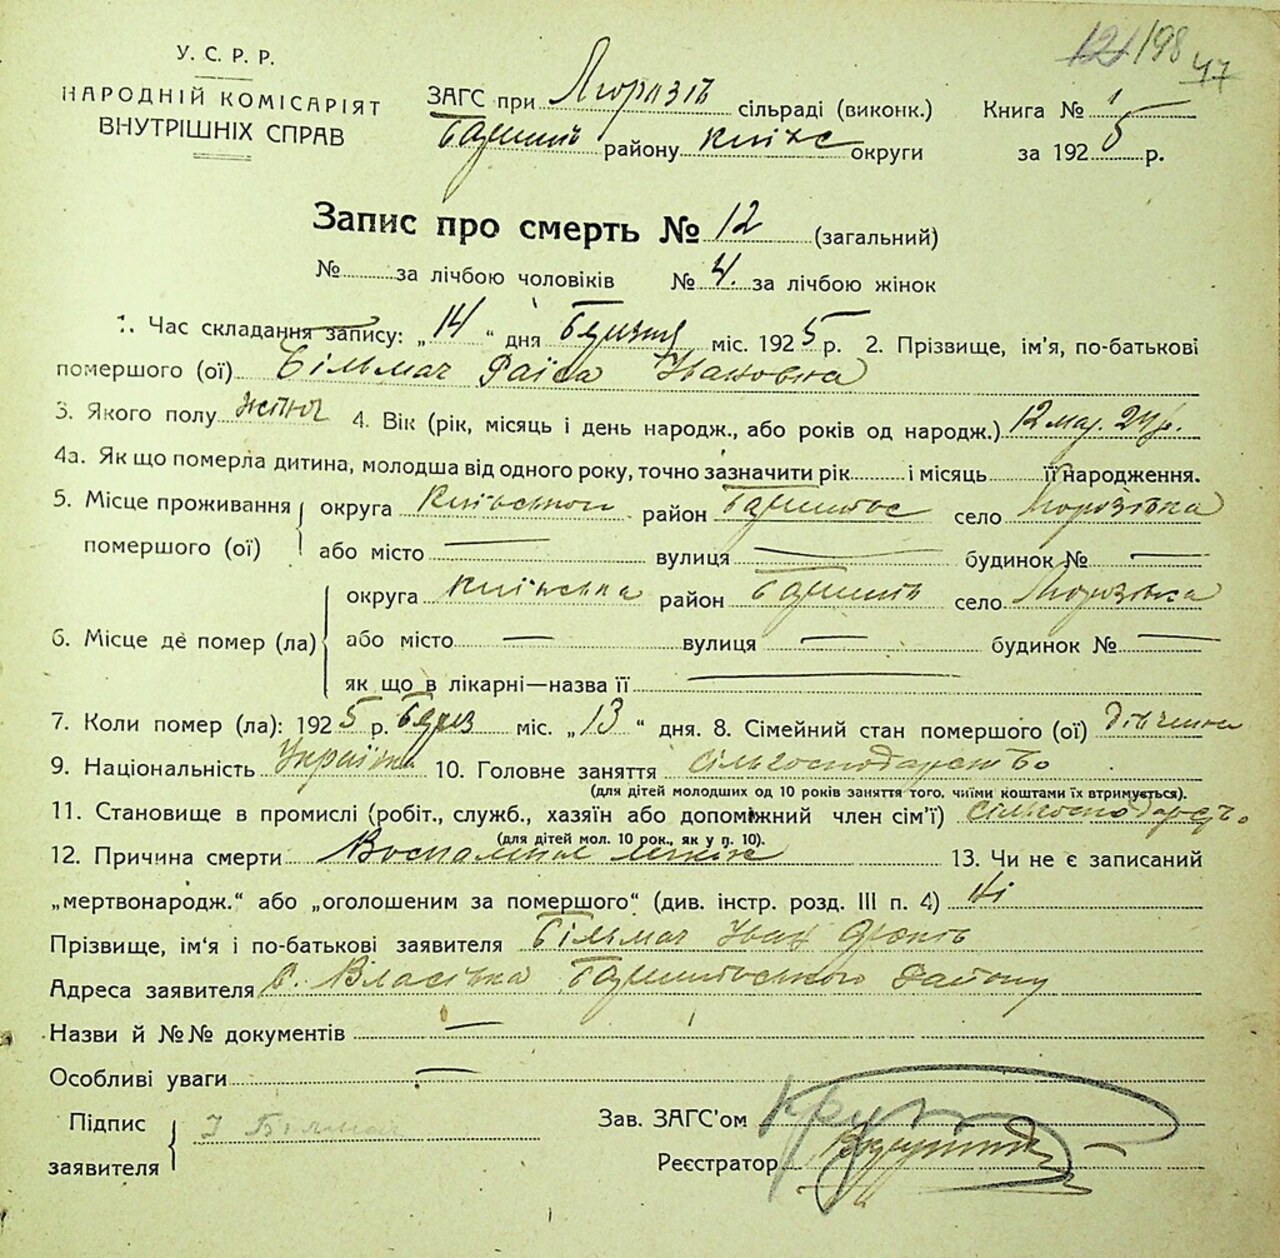 121 198
47
У. С. Р. Р.
НАРОДНІЙ КОМІСАРІЯТ
ВНУТРІШНІХ СПРАВ
ЗАГС при Морозів сільраді (виконк.)
Баришів району Київс округи
Книга № 1
за 1925 р.
Запис про смерть № 12 (загальний)
№ за лічбою чоловіків № 4. за лічбою жінок
1. Час складання запису: „14“ дня Березня міс. 1925 р. 2. Прізвище, ім'я, по-батькові
помершого (ої) Більмач Раїса Івановна
3. Якого полу жіноч 4. Вік (рік, місяць і день народж., або років од народж.) 12 мар. 24 р.
4а. Як що померла дитина, молодша від одного року, точно зазначити рік і місяць її народження.
5. Місце проживання округа Київської район Баришівс село Морозівка
помершого (ої) або місто — вулиця — будинок № —
округа Київська район Баришів село Морозівка
6. Місце де помер (ла) або місто — вулиця — будинок № —
як що в лікарні—назва її —
7. Коли помер (ла): 1925 р. Берез міс. „13“ дня. 8. Сімейний стан помершого (ої) дівчина
9. Національність Україн 10. Головне заняття сільгосподарство
(для дітей молодших од 10 років заняття того, чиїми коштами їх втримується).
11. Становище в промислі (робіт., служб., хазяїн або допоміжний член сім'ї)
(для дітей мол. 10 рок., як у п. 10).
12. Причина смерти Воспаление легких 13. Чи не є записаний
„мертвонародж.“ або „оголошеним за помершого“ (див. інстр. розд. III п. 4) Ні
Прізвище, ім'я і по-батькові заявителя Більмач Іван
Адреса заявителя с. Власівка Баришівського району
Назви й №№ документів —
Особливі уваги —
Підпис
заявителя І Більмач
Зав. ЗАГС'ом
Реєстратор